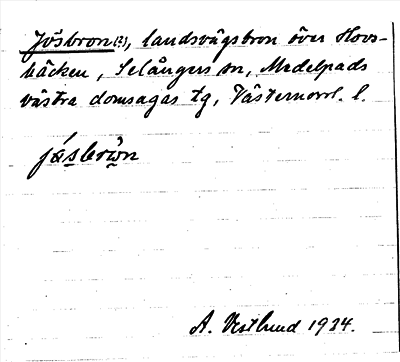 Jösbron(?), landsvägsbron över Hovs-
bäcken, Selångers sn, Medelpads
västra domsagas tg, Västernorrl. l.
A. Vestlund 1924.